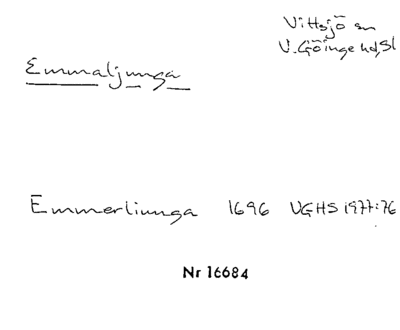 Vittsjö sn
V. Göinge hd, Sl
Emmaljunga
Emmerliunga 1696 VGHS 1977:76
Nr 16684